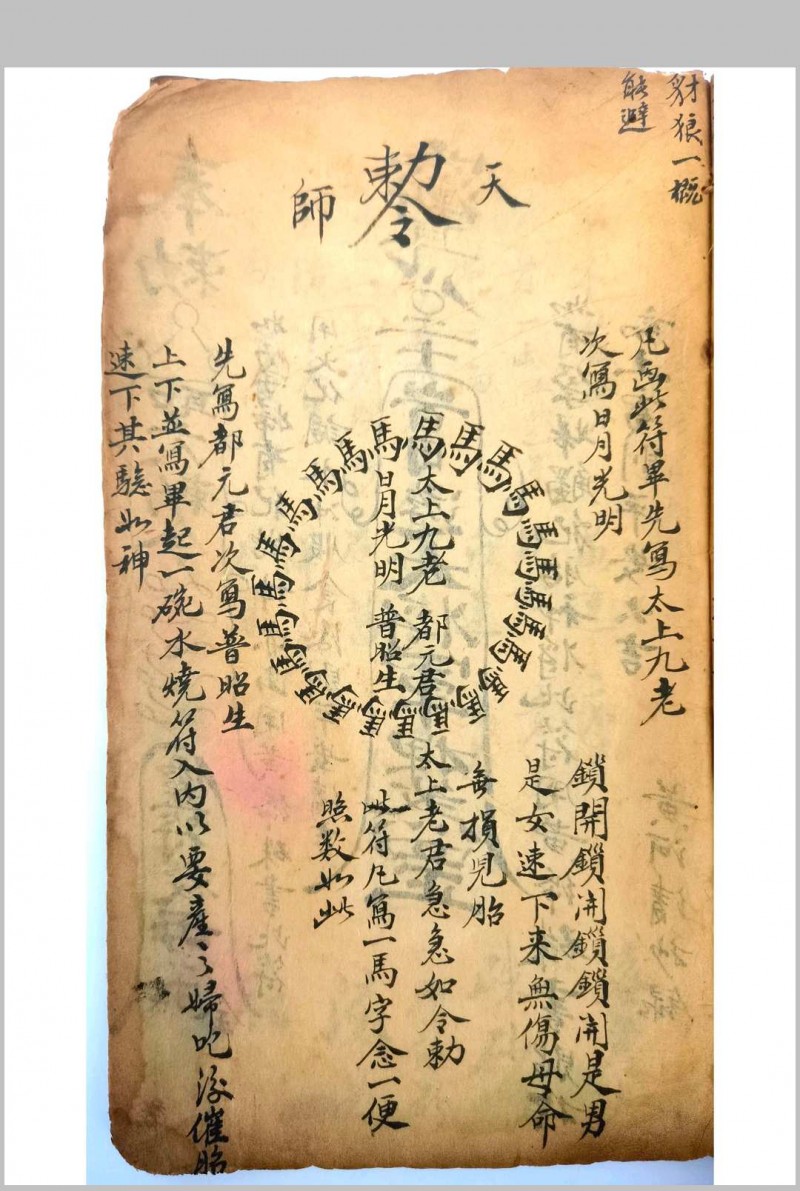 豺狼一概
能避
天
勅令
師
凡画此符畢先寫太上九老
次寫日月光明
鎖開鎖開鎖鎖開是男
是女速下来無傷母命
無損兒胎
馬馬馬馬馬馬馬馬馬馬馬馬馬馬馬馬馬馬馬馬馬馬馬馬
太上九老 都元君
日月光明 普昭生
太上老君急急如令勅
此符凡寫一馬字念一便
照数如此
先寫都元君次寫普昭生
上下並寫畢起一碗水燒符入内以要產之婦吃
催胎
速下其驗如神